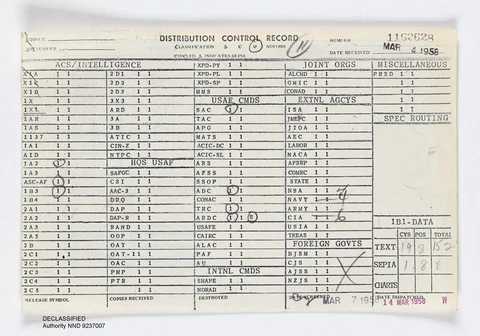 SOURCE
DISTRIBUTION CONTROL RECORD
NUMBER 116262R
CLASSIFICATION S C U
CIRCLED S INDICATES SEPIA
DATE RECEIVED MAR 4 1958
ACS/INTELLIGENCE XPD-PY 1 1 JOINT ORGS MISCELLANEOUS
X1A 1 1 2D1 1 1 XPD-PL 1 1 ALCHD 1 1 PRSD 1 1
1 1 2D2 1 1 XPD-SP 1 1 GMIC 1 1
X1B 1 1 2D3 1 1 MMS 1 1 CONAD 1 1
1X 1 1 3X3 1 1 USAF CMDS EXTNL AGCYS
1X1 1 1 ARD 1 1 SAC 1 1 ISA 1 1 SPEC ROUTING
1A 1 1 3A 1 1 TAC 1 1 1 1
1A5 1 1 3B 1 1 APG 1 1 JIOA 1 1
1137 1 1 ATIC 1 1 MATS 1 1 AEC 1 1
1A1 1 1 CIN-Z 1 1 ACIC-DC 1 1 LABOR 1 1
A1D 1 1 NTPC 1 1 ACIC-SL 1 1 NACA 1 1
1A2 1 1 HQS USAF ARS 1 1 AFSWP 1 1
1A3 1 1 SAFOC 1 1 AFSS 1 1 COMRC 1 1
ASC-AF 1 1 CSI 1 1 SSOP 1 1 STATE 1 1
1B3 1 1 AAC-3 1 1 ADC 1 1 NSA 1 1
1B4 1 1 DRQ 1 1 CONAC 1 1 NAVY 1 1 4
2A1 1 1 DAP 1 1 TRC 1 1 ARMY 1 1
2A2 1 1 DAP-R 1 1 ARDC 1 1 S CIA 1 1 6
2A3 1 1 RAND 1 1 USAFE 1 1 USIA 1 1 1B1-DATA
2A5 1 1 OOP 1 1 CAIRC 1 1 TREAS 1 1 CYS PGS TOTAL
2B 1 1 OAT 1 1 ALAC 1 1 FOREIGN GOVTS TEXT 19 8 152
2C1 1 1 OAT-11 1 1 PAF 1 1 BJSM 1 1
2C2 1 1 OAC 1 1 AU 1 1 CJS 1 1 SEPIA 1 8 8
2C3 1 1 PMP 1 1 INTNL CMDS AJSM 1 1
2C4 1 1 PTR 1 1 SHAPE 1 1 NZJSM 1 1 CHARTS
2C5 1 1 1 1 NORAD 1 1 1 1
RELEASE SYMBOL COPIES RECEIVED DESTROYED MAR 7 195 DATE DISPATCHED
14 MAR 1958 W
DECLASSIFIED
Authority NND 9237007